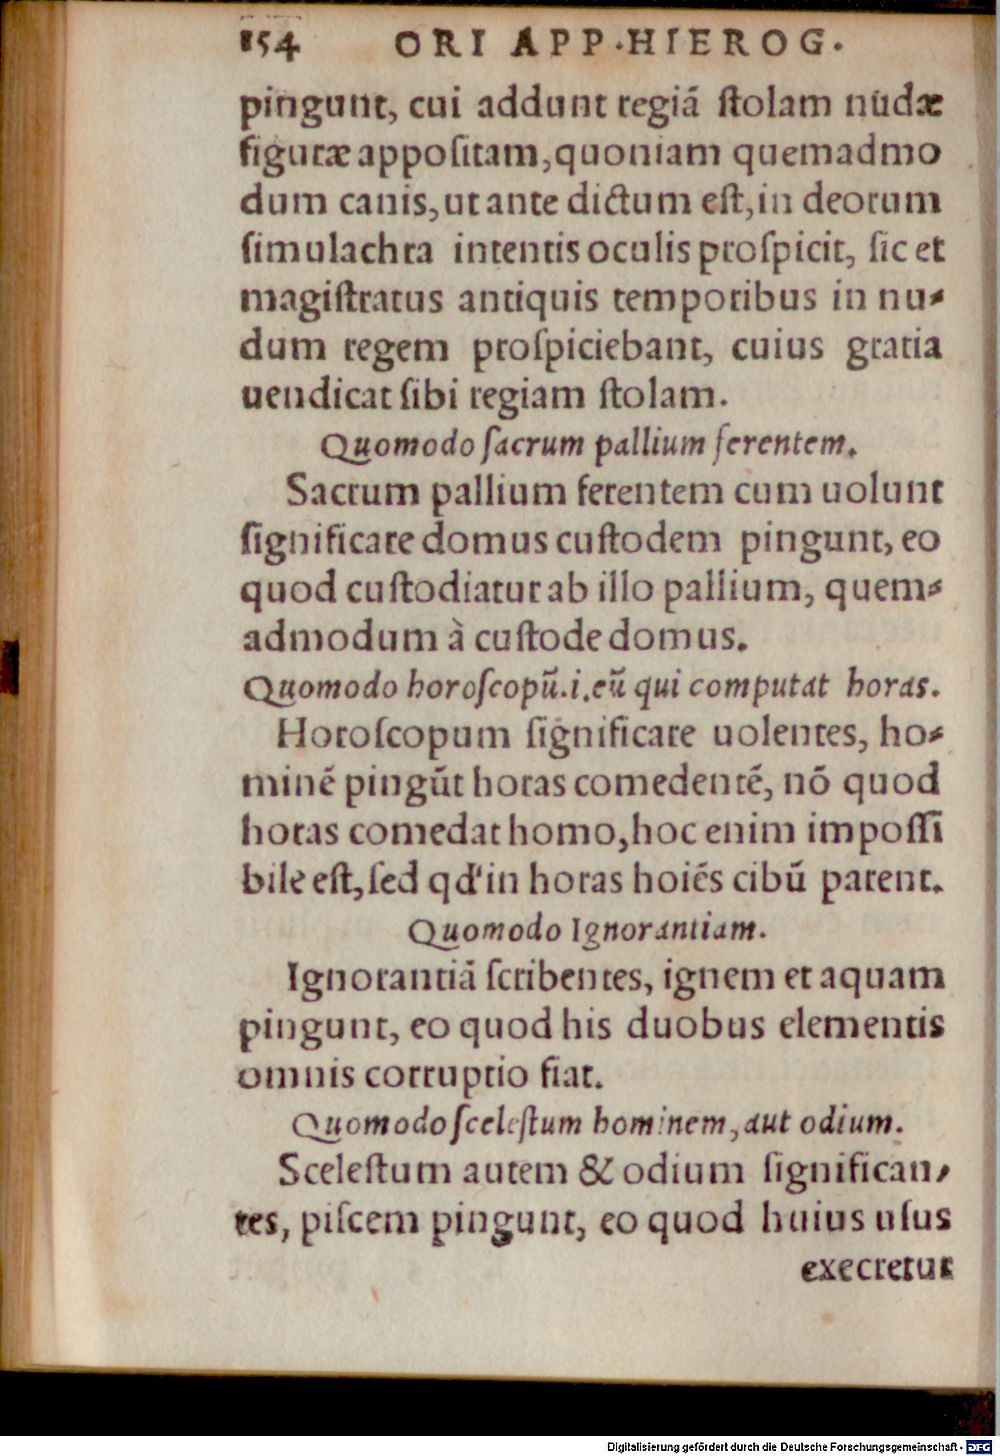 154 ORI APP·HIEROG.
pingunt, cui addunt regiā ſtolam nudæ
figuræ appoſitam, quoniam quemadmo
dum canis, ut ante dictum eſt, in deorum
ſimulachra intentis oculis proſpicit, ſic et
magiſtratus antiquis temporibus in nu-
dum regem proſpiciebant, cuius gratia
uendicat ſibi regiam ſtolam.
Quomodo ſacrum pallium ferentem.
Sacrum pallium ferentem cum uolunt
ſignificare domus cuſtodem pingunt, eo
quod cuſtodiatur ab illo pallium, quem-
admodum à cuſtode domus.
Quomodo horoſcopū.i.eū qui computat horas.
Horoſcopum ſignificare uolentes, ho-
minē pingūt horas comedentē, nō quod
horas comedat homo, hoc enim impoſſi
bile eſt, ſed qd' in horas hoiēs cibū parent.
Quomodo Ignorantiam.
Ignorantiā ſcribentes, ignem et aquam
pingunt, eo quod his duobus elementis
omnis corruptio fiat.
Quomodo ſceleſtum hominem, aut odium.
Sceleſtum autem & odium ſignifican-
tes, piſcem pingunt, eo quod huius uſus
execretur
Digitalisierung gefördert durch die Deutsche Forschungsgemeinschaft - DFG